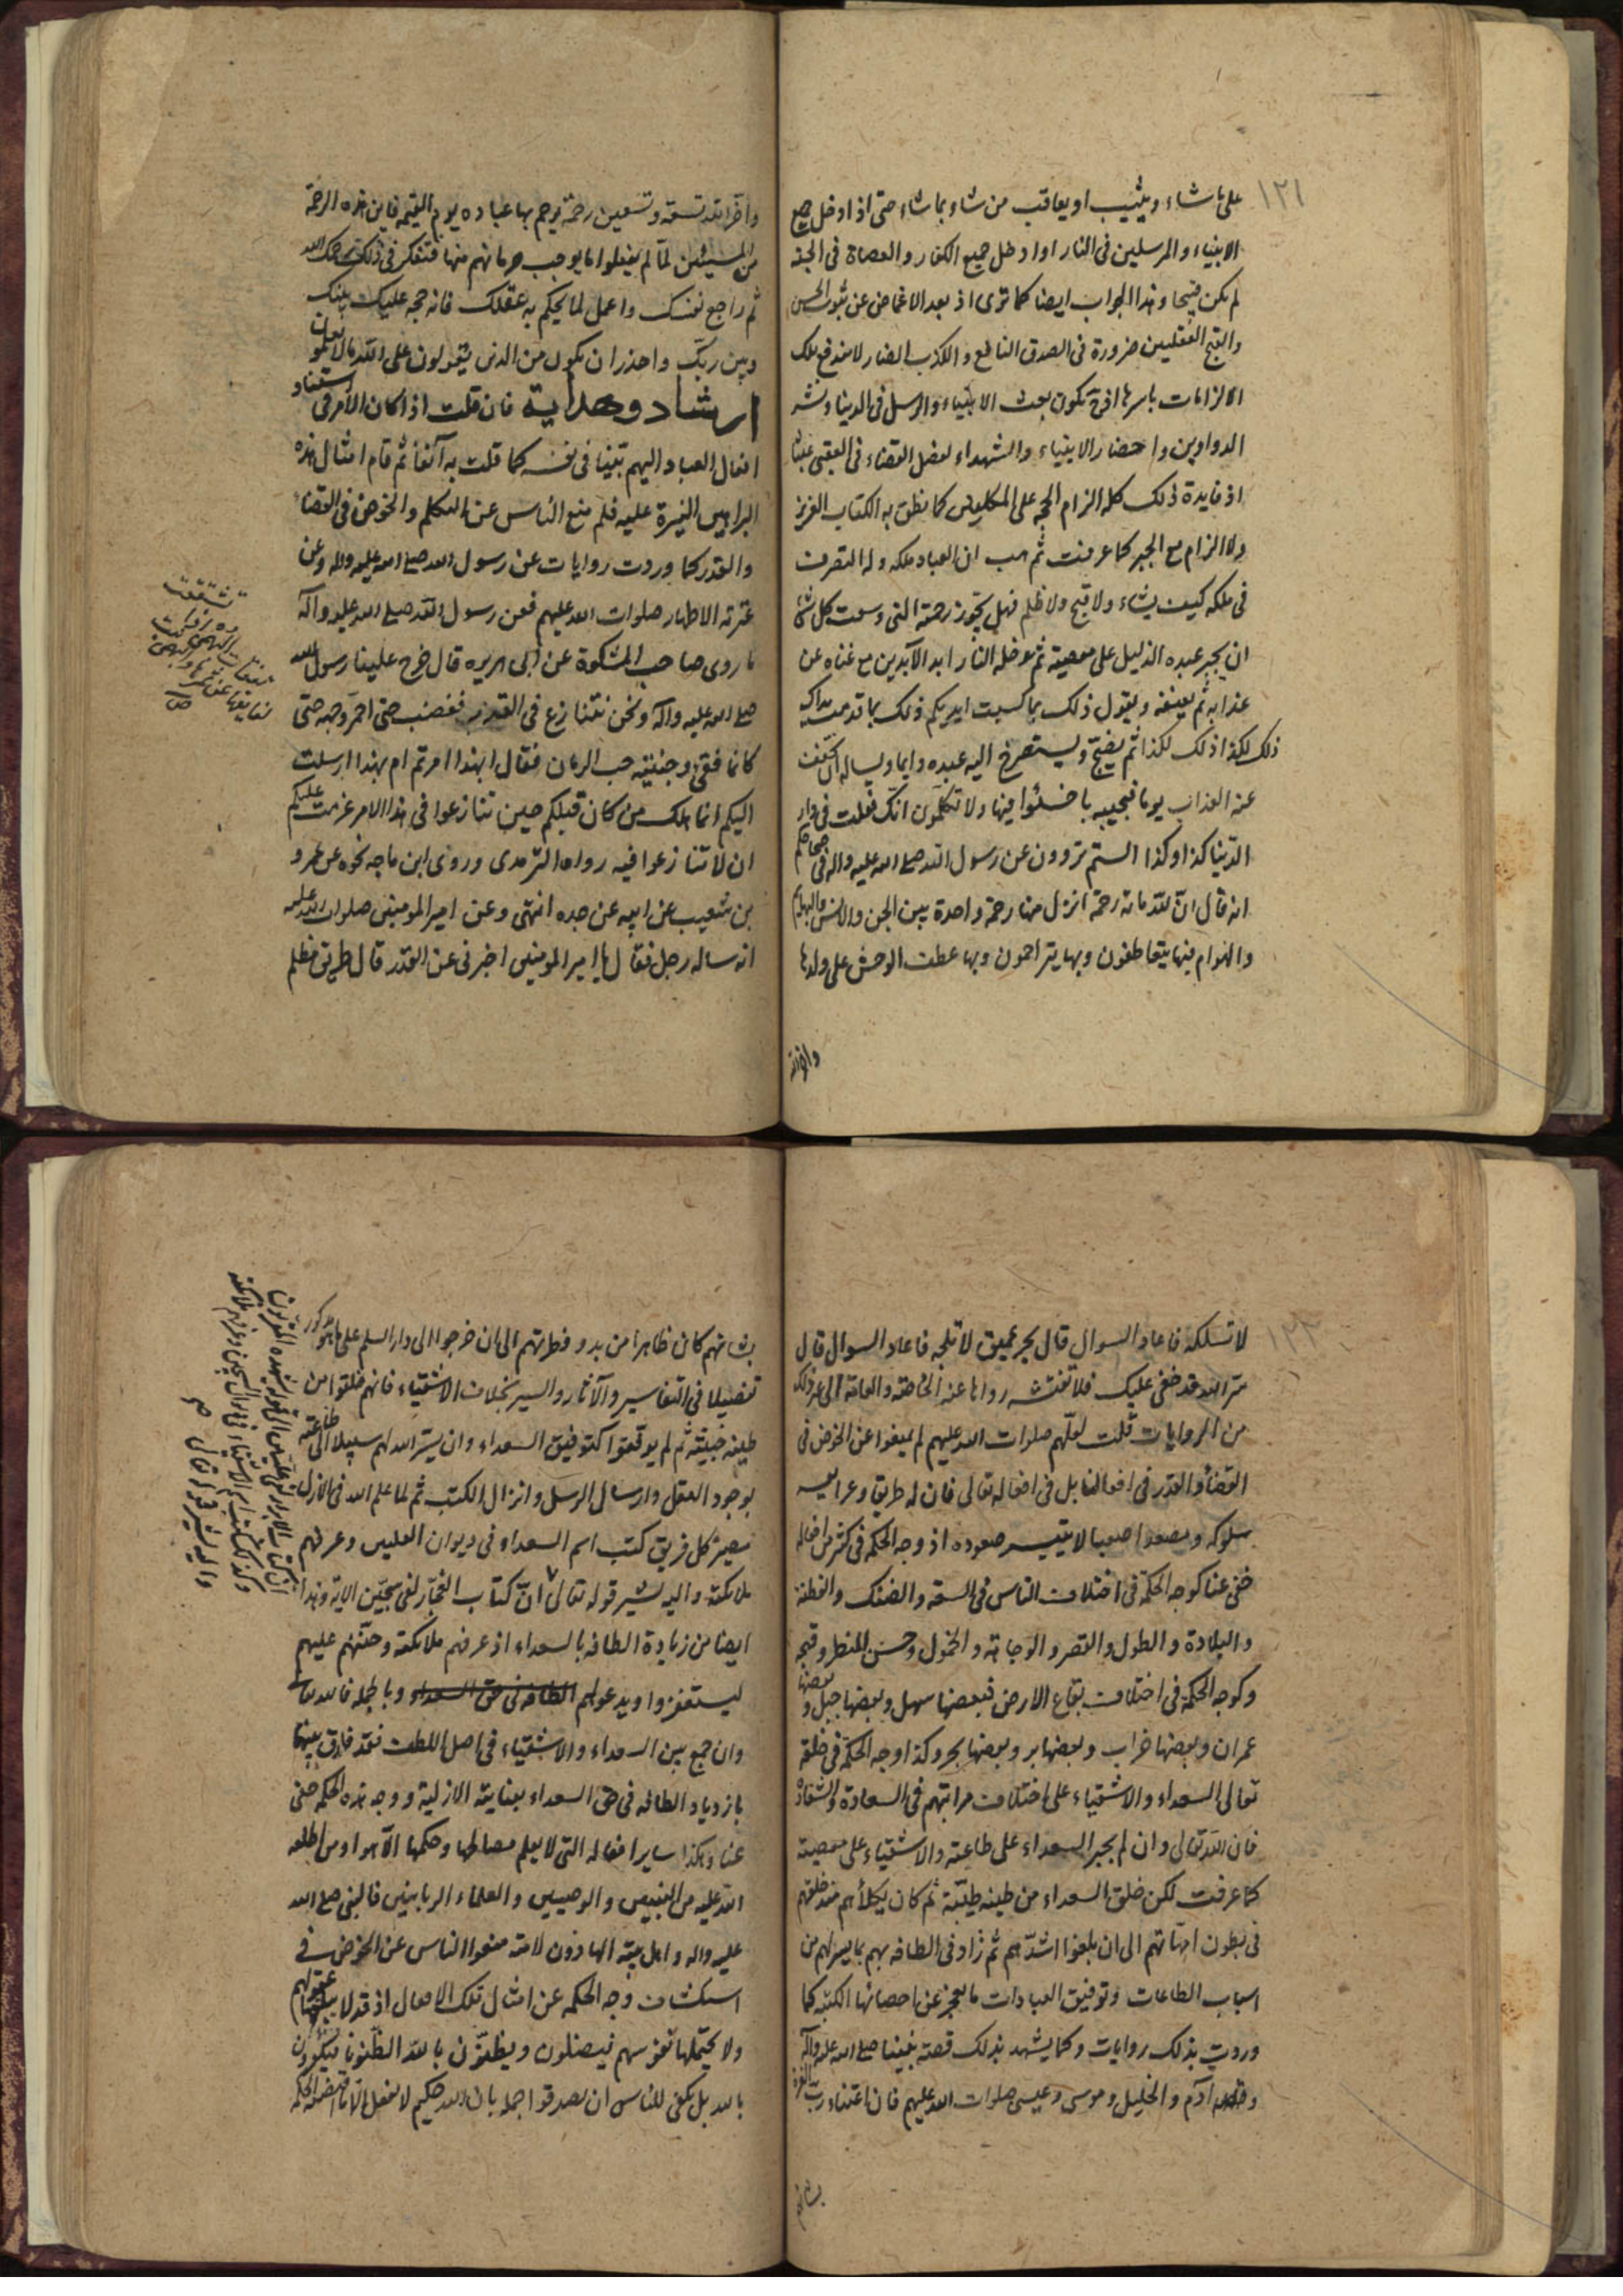 ١٢١
على ما شاء ويثيب او يعاقب من شاء بما شاء حتى اذا ادخل جميع
الانبياء والمرسلين فى النار او ادخل جميع الكفار والعصاة فى الجنة
لم يكن قبيحا وهذا الجواب ايضا كما ترى اذ بعد الاغماض عن ثبوت الحسن
والقبح العقليين ضرورة فى الصدق النافع والكذب الضار لا يندفع تلك
الالزامات باسرها اذ ح يكون بعث الانبياء والرسل فى الدنيا ونشر
الدواوين واحضار الانبياء والشهداء لفصل القضاء فى العقبى عبثا
اذ فايدة ذلك كله الزام الحجة على المكلفين كما نطق به الكتاب العزيز
ولا الزام مع الجبر كما عرفت ثم هب ان العباد ملكه وله التصرف
فى ملكه كيف يشاء ولا قبح ولا ظلم فهل يجوز رحمته التى وسعت كل شئ
ان يجبر عبده الذليل على معصيته ثم يدخله النار ابد الآبدين مع غناه عن
عذابه ثم يعنفه ويقول ذلك بما كسبت ايديكم ذلك بما قدمت يداك
ذلك لكذا ذلك لكذا ثم يضج ويستصرخ اليه عبده دايما ويساله ان يخفف
عنه العذاب يوما فيجيبه باخسئوا فيها ولا تكلمون انك فعلت فى دار
الدنيا كذا وكذا الستم تروون عن رسول الله صلى الله عليه واله فى صحاحكم
انه قال ان لله مائة رحمة انزل منها رحمة واحدة بين الجن والانس والبهائم
والهوام فبها يتعاطفون وبها يتراحمون وبها عطف الوحش على ولدها
واخر الله
واخر الله تسعة وتسعين رحمة يرحم بها عباده يوم القيمة فاين هذه الرحمة
من المسيئين لما لم يفعلوا ما يوجب حرمانهم منها فتفكر فى ذلك رحمك الله
ثم راجع نفسك واعمل لما يحكم به عقلك فانه حجة عليك بينك
وبين ربك واحذر ان يكون من الذين يقولون على الله ما لا يعلمون
ارشاد وهداية فان قلت اذا كان الامر فى استناد
افعال العباد اليهم بينا فى نفسه كما قلت به آنفا ثم قام امثال هذه
البراهين النيرة عليه فلم منع الناس عن التكلم والخوض فى القضاء
والقدر كما وردت روايات عن رسول الله صلى الله عليه واله وعن
عترته الاطهار صلوات الله عليهم فعن رسول الله صلى الله عليه وآله
ما روى صاحب المشكوة عن ابى هريره قال خرج علينا رسول الله
صلى الله عليه وآله ونحن نتنازع فى القدر فغضب حتى احمر وجهه حتى
كانما فقئ وجنتيه حب الرمان فقال ابهذا امرتم ام بهذا ارسلت
اليكم انما هلك من كان قبلكم حين تنازعوا فى هذا الامر عزمت عليكم
ان لا تنازعوا فيه رواه الترمذى وروى ابن ماجه نحوه عن عمرو
بن شعيب عن ابيه عن جده انتهى وعن امير المومنين صلوات الله عليه
انه ساله رجل فقال يا امير المومنين اخبرنى عن القدر قال طريق مظلم
لا تسلكه فاعاد السوال قال بحر عميق لا تلجه فاعاد السوال قال
سر الله قد خفى عليك فلا تفتشه رواها عنه الخاصة والعامة الى غير ذلك
من الروايات قلت لعلهم صلوات الله عليهم لم يمنعوا عن الخوض فى
القضاء والقدر فى افعالنا بل فى افعاله تعالى فان له طريقا وعرا
سلوكه ومصعدا صعبا لا يتيسر صعوده اذ وجه الحكمة فى كثير من افعاله
خفى عنا كوجه الحكمة فى اختلاف الناس فى السعة والضنك والفطنة
والبلادة والطول والقصر والوجاهة والخمول وحسن المنظر وقبحه
وكوجه الحكمة فى اختلاف بقاع الارض فبعضها سهل وبعضها جبل وبعضها
عمران وبعضها خراب وبعضها بر وبعضها بحر وكذا وجه الحكمة فى خلقه
تعالى السعداء والاشقياء على اختلاف مراتبهم فى السعادة والشقاوة
فان الله تعالى وان لم يجبر السعداء على طاعته والاشقياء على معصيته
كما عرفت لكن خلق السعداء من طينة طيبة ثم كان يكلأهم منذ خلقهم
فى بطون امهاتهم الى ان بلغوا اشدهم ثم زاد فى الطافه بهم بما يسر لهم من
اسباب الطاعات وتوفيق العبادات ما يعجز عن احصائها الكتبة كما
وردت بذلك روايات وكما يشهد بذلك قصة نبينا صلى الله عليه وآله
وقصة آدم والخليل وموسى وعيسى صلوات الله عليهم فان اعتناء رب العزة
بشانهم
بشانهم كان ظاهرا من بدو فطرتهم الى ان خرجوا الى دار السلم على ما هو مذكور
تفصيلا فى التفاسير والآثار والسير بخلاف الاشقياء فانهم خلقوا من
طينة خبيثة ثم لم يوفقوا كتوفيق السعداء وان يسر الله لهم سبيلا الى طاعته
بوجود العقل وارسال الرسل وانزال الكتب ثم لما علم الله فى الازل
مصير كل فريق كتب اسم السعداء فى ديوان العليين وعرفهم
ملائكته واليه يشير قوله تعالى ان كتاب الفجار لفى سجين الاية وهذا
ايضا من زيادة الطافه بالسعداء اذ عرفهم ملائكته وحثهم عليهم
ليستغفروا ويدعوا لهم الطافه فى حق السعداء وبالجملة فالله تعالى
وان جمع بين السعداء والاشقياء فى اصل اللطف فقد فارق بينهما
بازدياد الطافه فى حق السعداء بعنايته الازلية ووجه هذه الحكمة خفى
عنا وهكذا ساير افعاله التى لا يعلم مصالحها وحكمها الا هو او من اطلعه
الله عليه من النبيين والوصيين والعلماء الربانيين فالنبى صلى الله
عليه واله واهل بيته الهادون لامته منعوا الناس عن الخوض فى
استكشاف وجه الحكمة عن امثال تلك الافعال اذ قد لا يبلغها عقولهم
ولا يحتملها نفوسهم فيضلون ويظنون بالله الظنونا فيكفرون
بالله بل يكفى للناس ان يصدقوا اجمالا بان الله حكيم لا يفعل الا ما